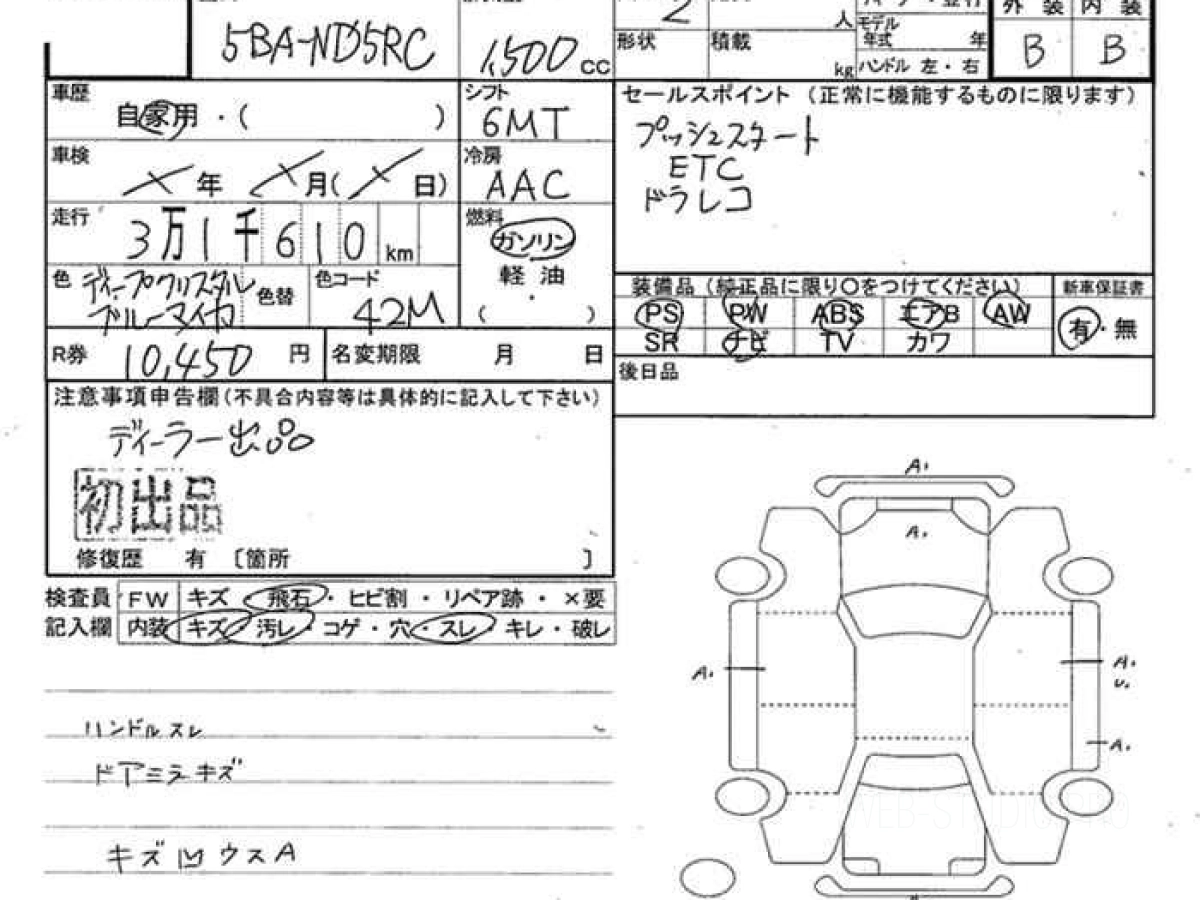 5BA-ND5RC
1,500 cc
2 人
形状 積載 kg
モデル年式 年
ハンドル 左・右
外装 内装
B B
車歴 自家用・( )
シフト 6MT
車検 年 月( 日)
冷房 AAC
走行 3万1千610km
燃料 ガソリン
軽油
( )
色 ディープクリスタルブルーマイカ 色替 色コード 42M
R券 10,450 円 名変期限 月 日
注意事項申告欄(不具合内容等は具体的に記入して下さい)
ディーラー出品
初出品
修復歴 有 〔箇所 〕
検査員記入欄
FW キズ・飛石・ヒビ割・リペア跡・×要
内装 キズ・汚レ・コゲ・穴・スレ・キレ・破レ
ハンドルスレ
ドアミラーキズ
キズ凹ウスA
セールスポイント(正常に機能するものに限ります)
プッシュスタート
ETC
ドラレコ
装備品(純正品に限り○をつけてください)
PS PW ABS エアB AW
SR ナビ TV カワ
新車保証書
有・無
後日品
A1
A1
A1
A1
U1
A1
WEB-STUDIO